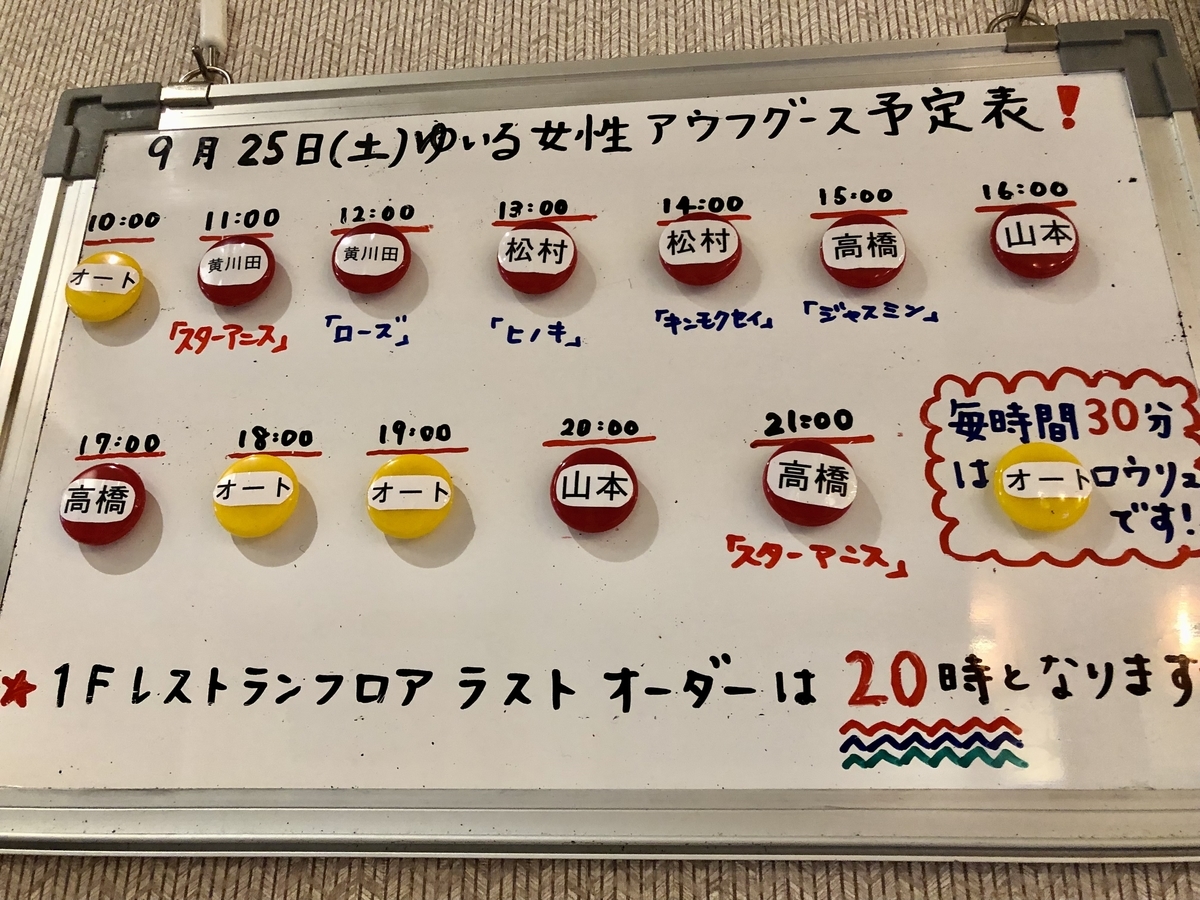 9月25日(土)ゆいる女性 アウフグース予定表!
10:00 11:00 12:00 13:00 14:00 15:00 16:00
オート 黄川田 黄川田 松村 松村 高橋 山本
「スターアニス」 「ローズ」 「ヒノキ」 「キンモクセイ」 「ジャスミン」
17:00 18:00 19:00 20:00 21:00
高橋 オート オート 山本 高橋
「スターアニス」
毎時間30分
は オート ロウリュ
です!
★1Fレストランフロア ラストオーダーは 20時となります